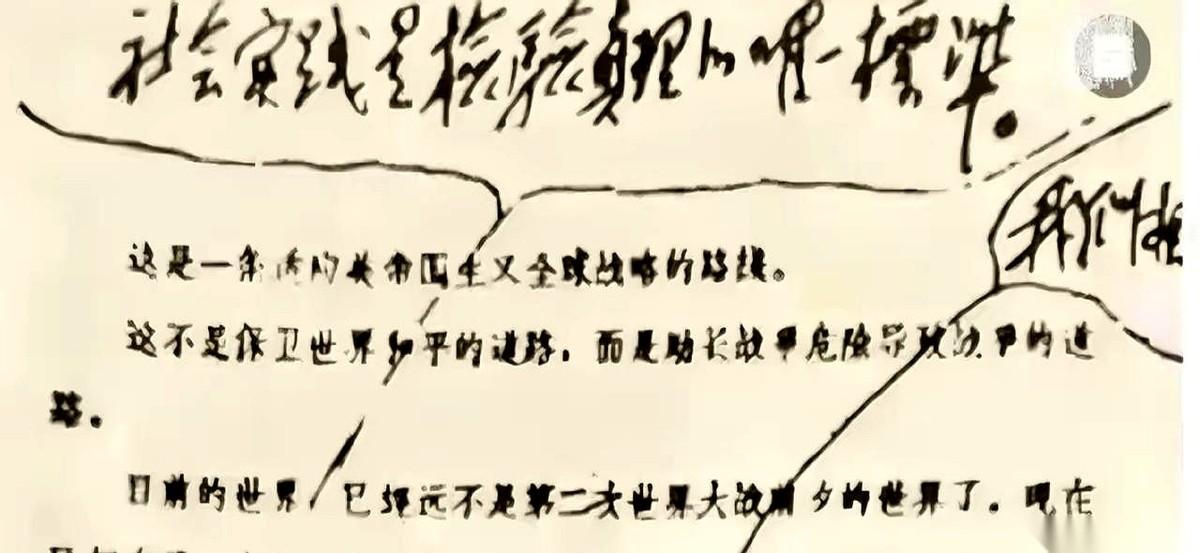 社会实践是檢驗真理的唯一標準。
我们
这是一条 的美帝国主义全球战略的路线。
这不是保卫世界和平的道路，而是助长战争危险导致战争的道
路。
目前的世界，已经远不是第二次世界大战前夕的世界了。现在